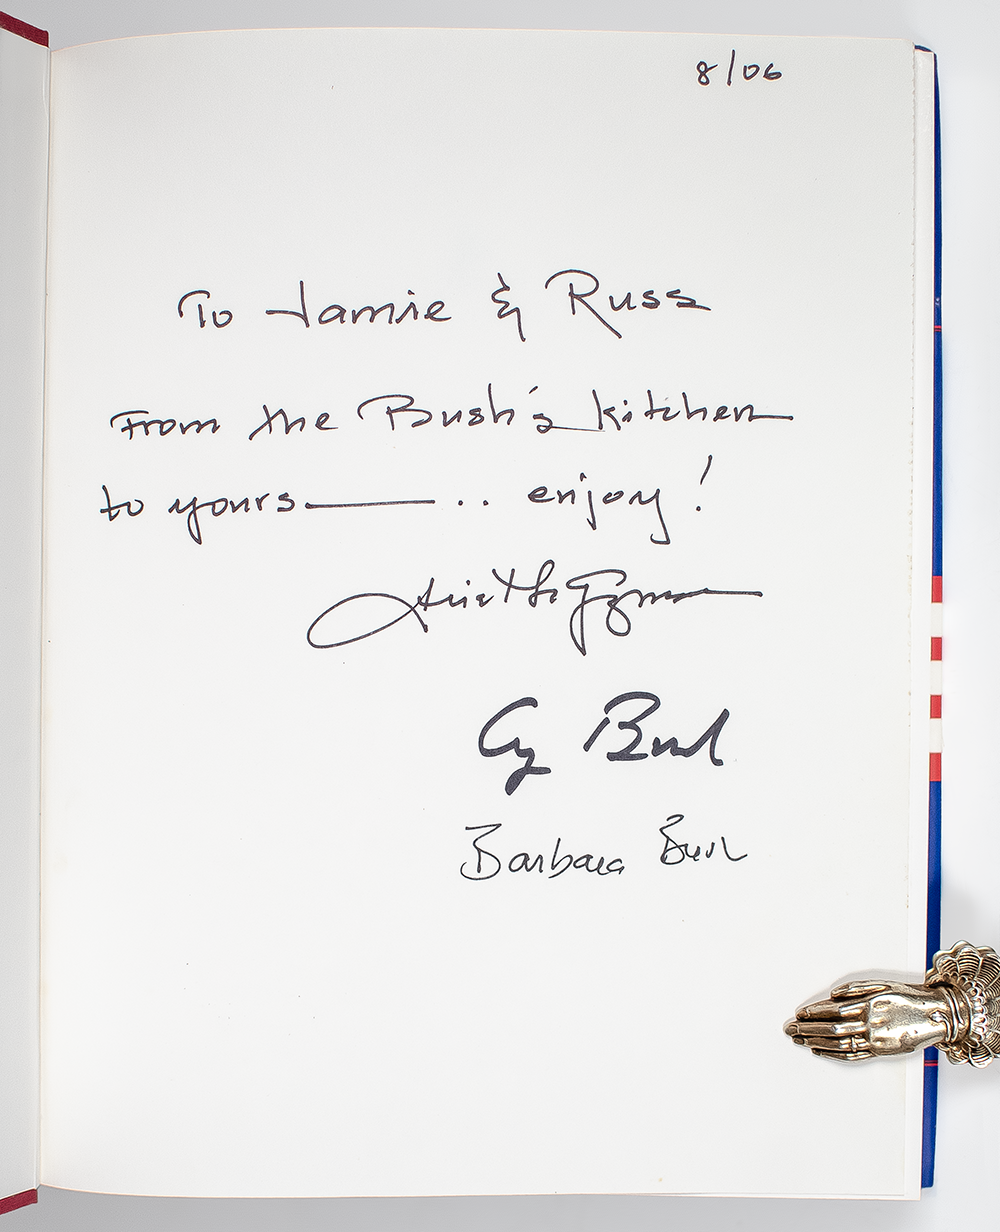 8/06
To Jamie & Russ
From the Bush's kitchen
to yours—.. enjoy!
Ariel De Guzman
G Bush
Barbara Bush